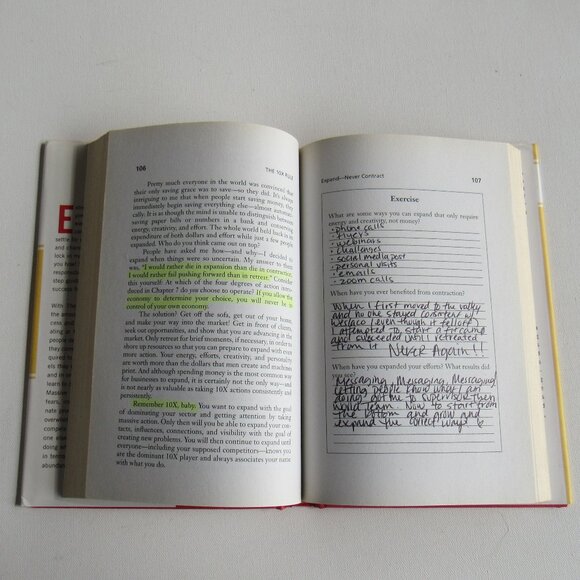 106
THE 10X RULE
Pretty much everyone in the world was convinced that
their only saving grace was to save—so they did. It's always
intriguing to me that when people start saving money, they
immediately begin saving everything else—almost automati-
cally. It is as though the mind is unable to distinguish between
saving paper bills or numbers in an account and saving
energy, creativity, and effort. The whole world held back its
expenditure of both dollars and effort while just a few people
expanded. Who do you think came out on top?
People have asked me how—and why—I decided to
expand when things were so uncertain. My answer to them
was, "I would rather die in expansion than die in contraction.
I would rather fail pushing forward than in retreat." Consider
this yourself: At which of the four degrees of action intro-
duced in Chapter 7 do you choose to operate? If you allow the
economy to determine your choice, you will never be in
control of your own economy.
The solution? Get off the sofa, get out of your home,
and make your way into the market! Get in front of clients,
seek out opportunities, and show that you are advancing in the
market. Only retreat for brief moments, if necessary, in order to
shore up resources so that you can prepare to expand with even
more action. Your energy, efforts, creativity, and personality
are worth more than the dollars that men create and machines
print. And although spending money is the most common way
for businesses to expand, it is certainly not the only way—and
it's not nearly as valuable as taking 10X actions consistently and
persistently.
Remember 10X, baby. You want to expand with the goal
of dominating your sector and getting attention by taking
massive action. Only then will you be able to expand your con-
tacts, influences, connections, and visibility with the goal of
creating new problems. You will then continue to expand until
everyone—including your supposed competitors—knows you
are the dominant 10X player and always associates your name
with what you do.
Expand—Never Contract
107
Exercise
What are some ways you can expand that only require
energy and creativity, not money?
• phone calls
• flyers
• webinars
• challenges
• social media post
• personal visits
• emails
• zoom calls
When have you ever benefited from contraction?
When I first moved to the valley
and no one stayed consistent w/
even though it fell off
I attempted to start a
and succeeded until I retreated
from it
Never Again!!
When have you expanded your efforts? What results did
you see?
Messaging, Messaging, Messaging!
Letting people know what I am
doing got me to supervisor then
build team. Now to start from
the bottom and grow and
expand the correct way!